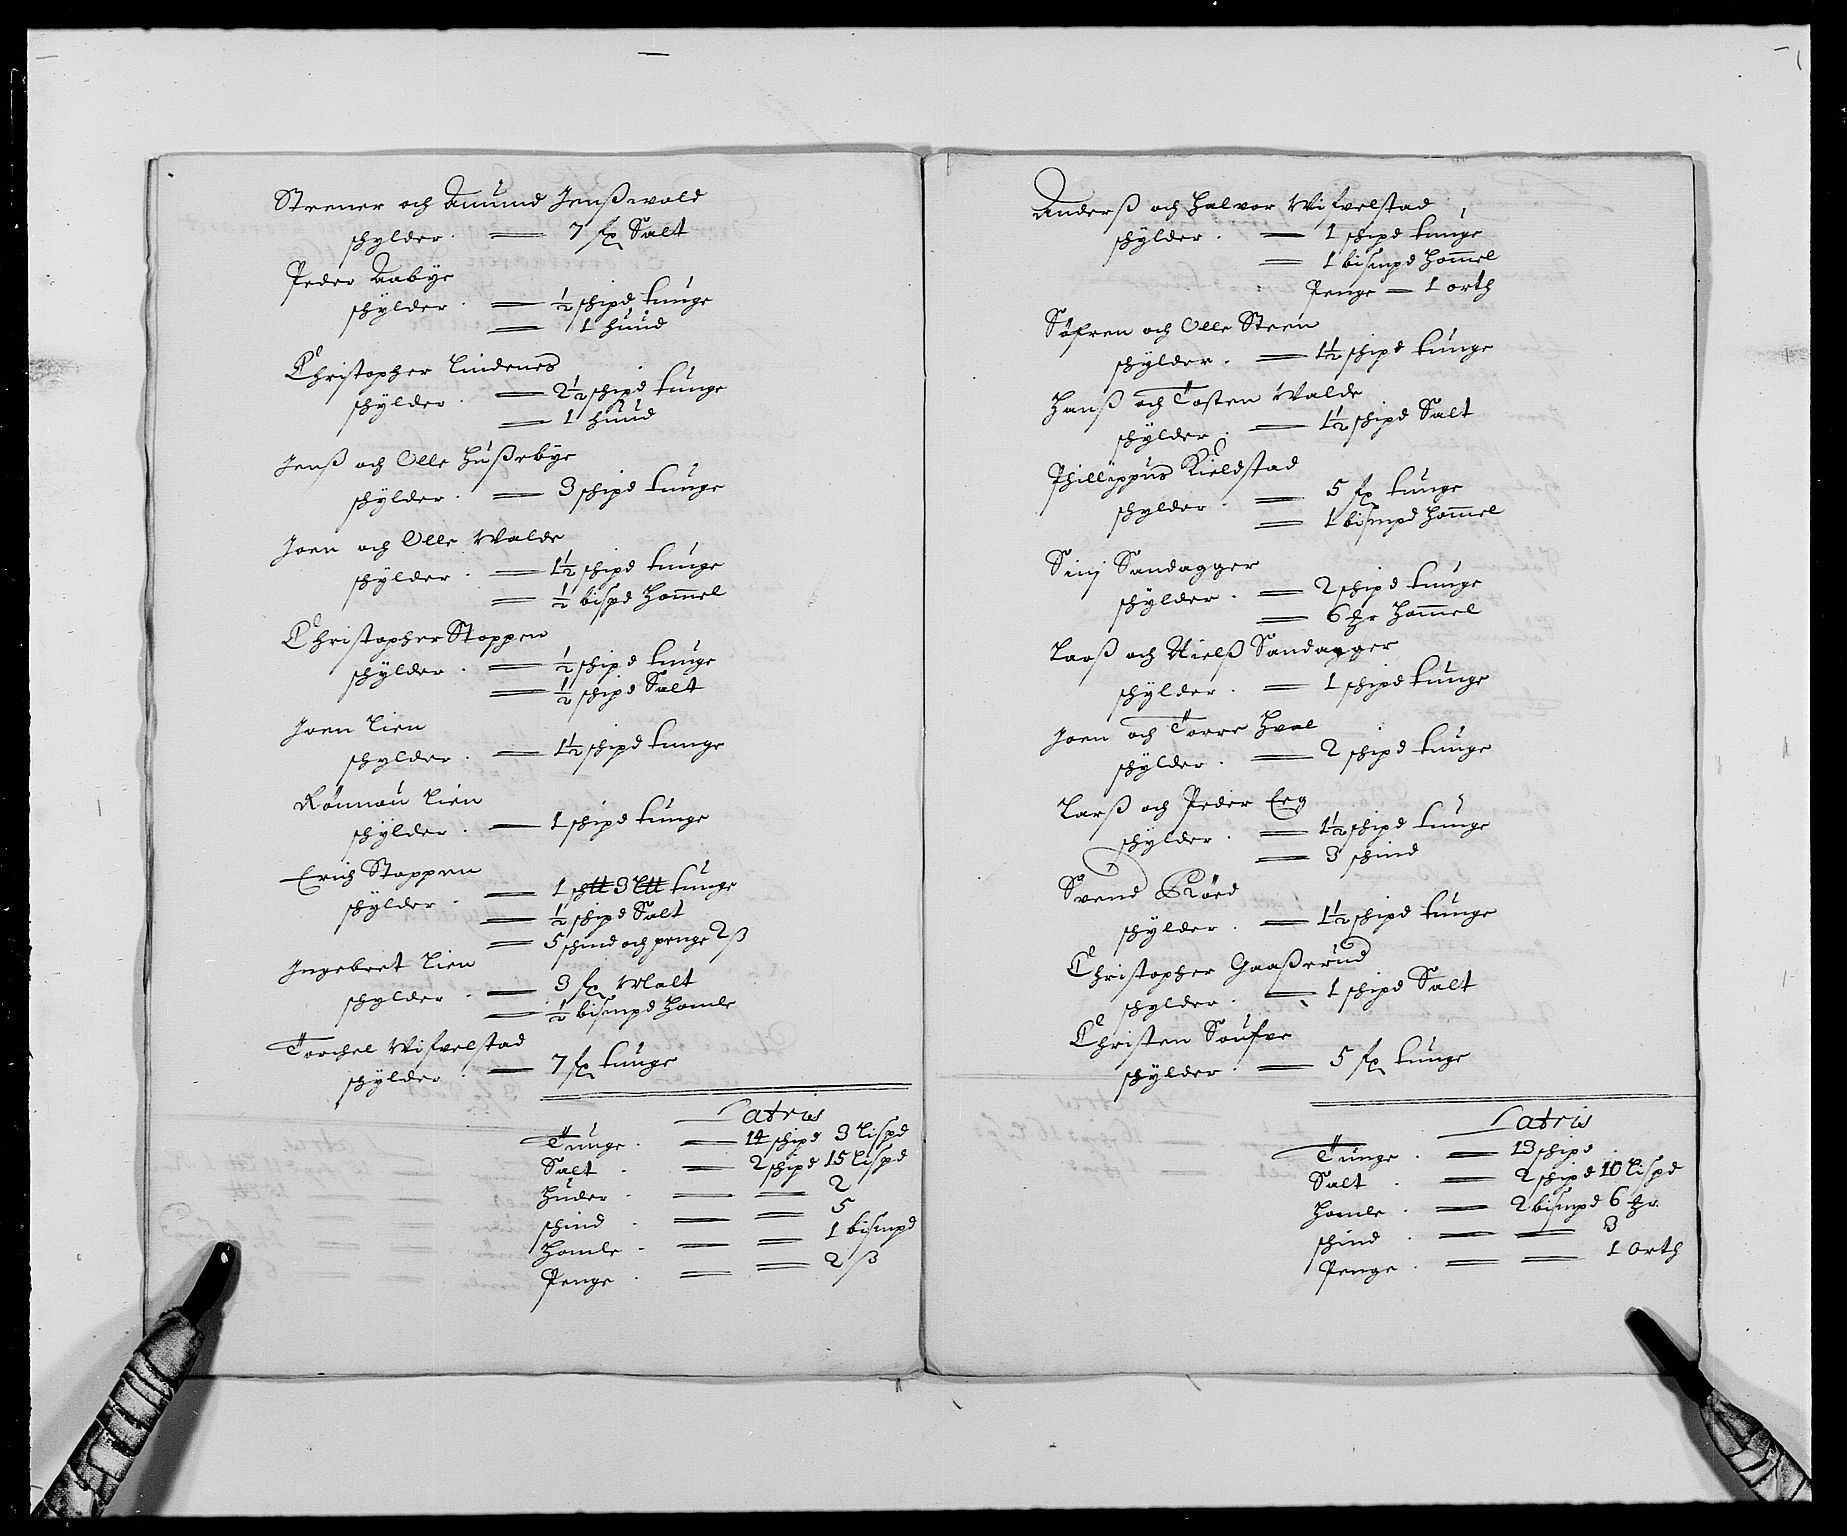 Strener och Amund Jenßwold
schylder. — 7 fz Salt
Peder Aabÿe
schÿlder. — ½ schipd tunge
— 1 huud
Christopher Lindenes
schÿlder. — 2½ schipd tunge
— 1 huud
Jenß och Olle Hußebÿe
schÿlder. — 3 schipd tunge
Joen och Olle Walde
schÿlder. — 1½ schipd tunge
— ½ bispd Hommel
Christopher Stoppen
schÿlder. — ½ schipd tunge
— ½ schipd Salt
Joen Lien
schylder. — 1½ schipd tunge
Rönnou Lien
schÿlder. — 1 schipd tunge
Erich Stoppen
schÿlder. — 1 sch℔ 3 L℔ tunge
— ½ schipd Salt
— 5 schind och penge 2 ß
Ingebret Lien
schÿlder. — 3 fz Malt
— ½ bismpd Homle
Torchel Wifvelstad
schÿlder — 7 fz tunge
Latris
Tunge. — 14 schipd 3 Lispd
Salt. — 2 schipd 15 Lispd
Huder. — — 2
schind. — — 5
Homle. — — 1 bismpd
Penge. — — 2 ß
Anderß och Halvor Wifvelstad
schÿlder. — 1 schipd tunge
— 1 bismpd Hommel
Penge — 1 orth
Söfren och Olle Steen
schÿlder. — 1½ schipd tunge
Hanß och Tosten Walde
schÿlder. — 1½ schipd Salt
Phillippus Kieldstad
schylder. — 5 fz tunge
— 1 bismpd Hommel
Sinj Sandagger
schÿlder. — 2 schipd tunge
— 6 Hommel
Laaß och Nielß Sandagger
schÿlder. — 1 schipd tunge
Joen och Torre Hval
schÿlder. — 2 schipd tunge
Larß och Peder Eeg
schÿlder. — 1½ schipd tunge
— 3 schind
Svend Röed
schÿlder. — 1½ schipd tunge
Christopher Gaaßerud
schylder. — 1 schipd Salt
Christen Soufve
schÿlder. — 5 fz tunge
Latris
Tunge. — 13 schipd
Salt. — 2 schipd 10 Lispd
Homle. — 2 bismpd 6
schind. — — 3
Penge. — — 1 Orth